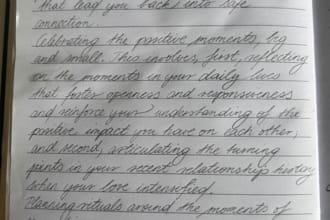 that lead you back into safe
connection.
Celebrating the positive moments, big
and small. This involves, first, reflecting
on the moments in your daily lives
that foster openness and responsiveness
and reinforce your understanding of the
positive impact you have on each other,
and second, articulating the turning
points in your recent relationship history
when your love intensified.
Planning rituals around the moments of